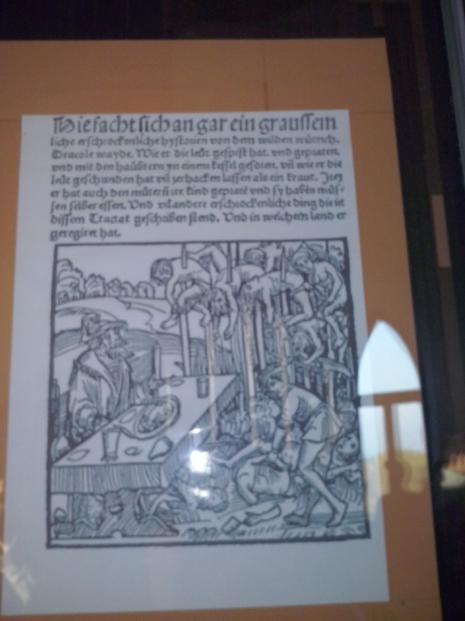 Hie facht sich an gar ein graussem
liche erschrockenliche hystorien von dem wilden wütrich.
Dracole wayde. Wie er die leüt gespist hat. vnd gepraten.
vnd mit den haübtern yn einem kessel gesoten. vñ wie er die
leüt geschunden hat vñ zerhacken lassen als ein kraut. Jteȝ
er hat auch den mütern ire kind gepratē vnd sy habēn müs-
sen selber essen. Vnd vil andere erschrockenliche ding die in
dissem Tractat geschriben stend. Vnd in welchem land er
geregiret hat.